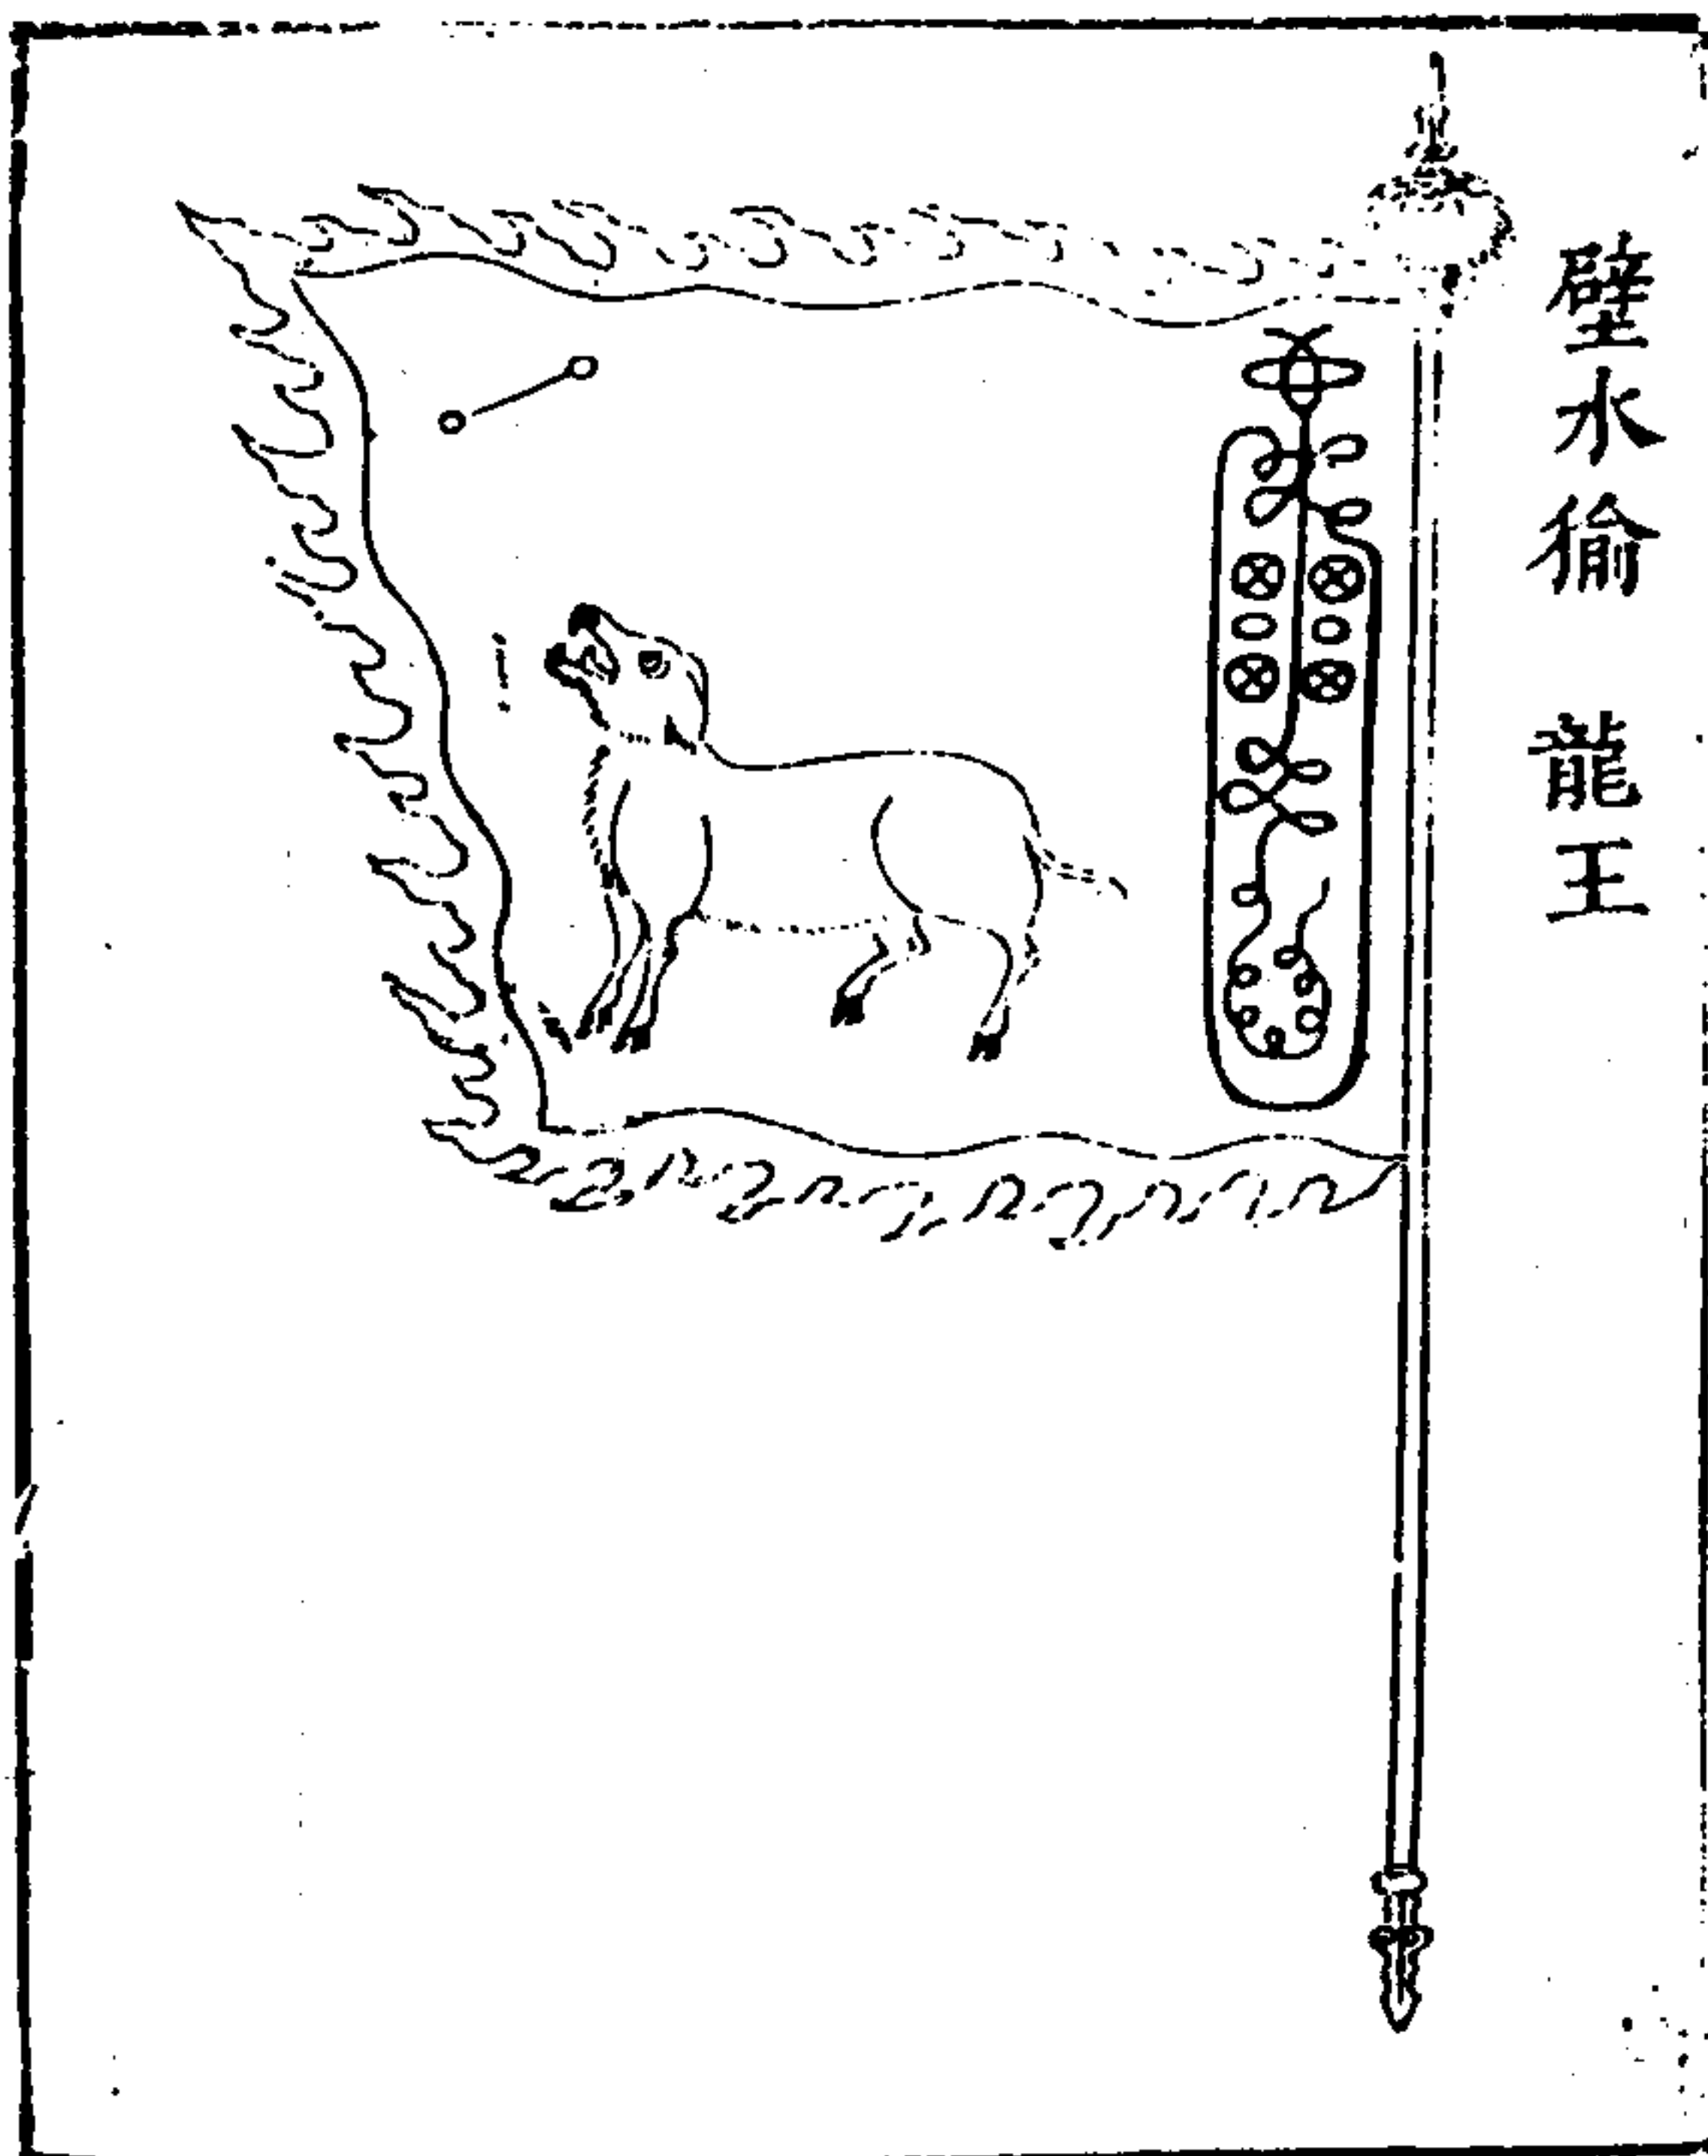 壁水㺄　龍王